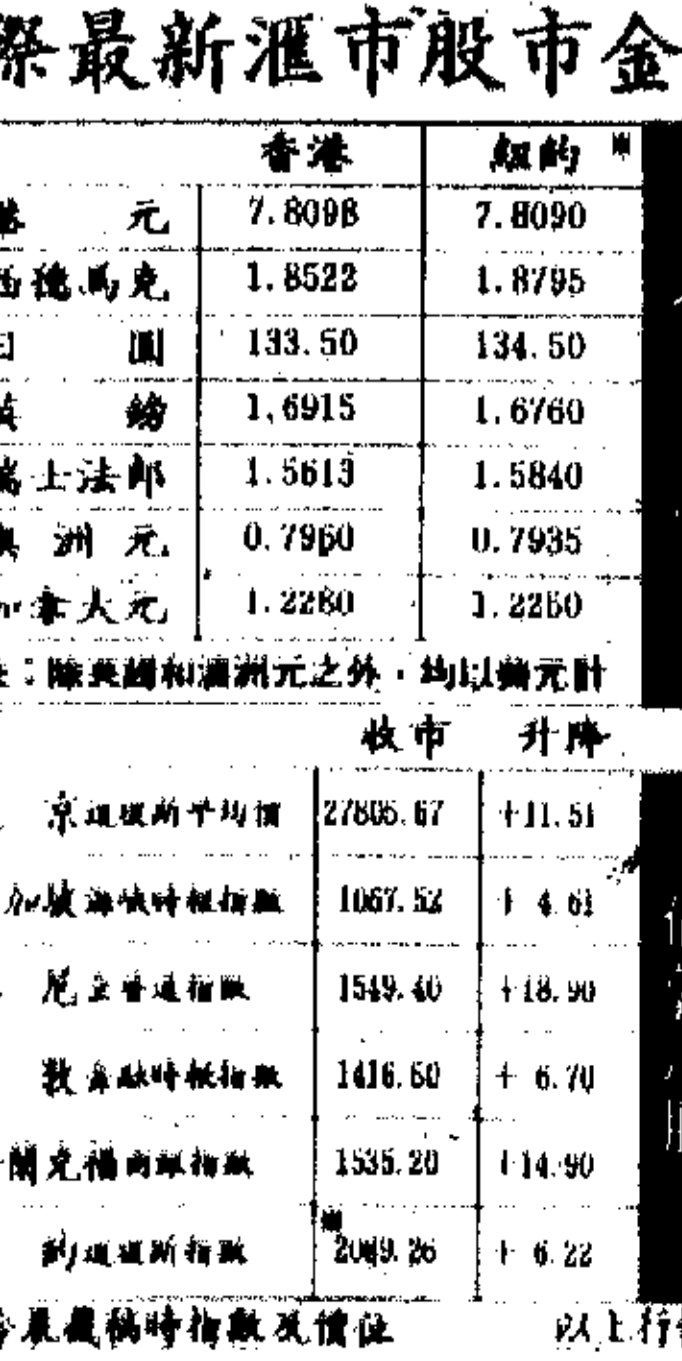 際最新滙市股市金
香港 紐約 ※
港元 7.8098 7.8090
西德馬克 1.8522 1.8795
日圓 133.50 134.50
英鎊 1.6915 1.6760
瑞士法郎 1.5613 1.5840
澳洲元 0.7960 0.7935
加拿大元 1.2260 1.2250
註：除英鎊和澳洲元之外，均以美元計
收市 升降
京道瓊斯平均價 27805.67 +11.51
加坡海峽時報指數 1067.52 + 4.61
尼立普通指數 1549.40 +18.90
敦金融時報指數 1416.60 + 6.70
蘭克福商銀指數 1535.20 +14.90
約道瓊斯指數 ※ 2089.26 + 6.22
為最截稿時指數及價位 以上行